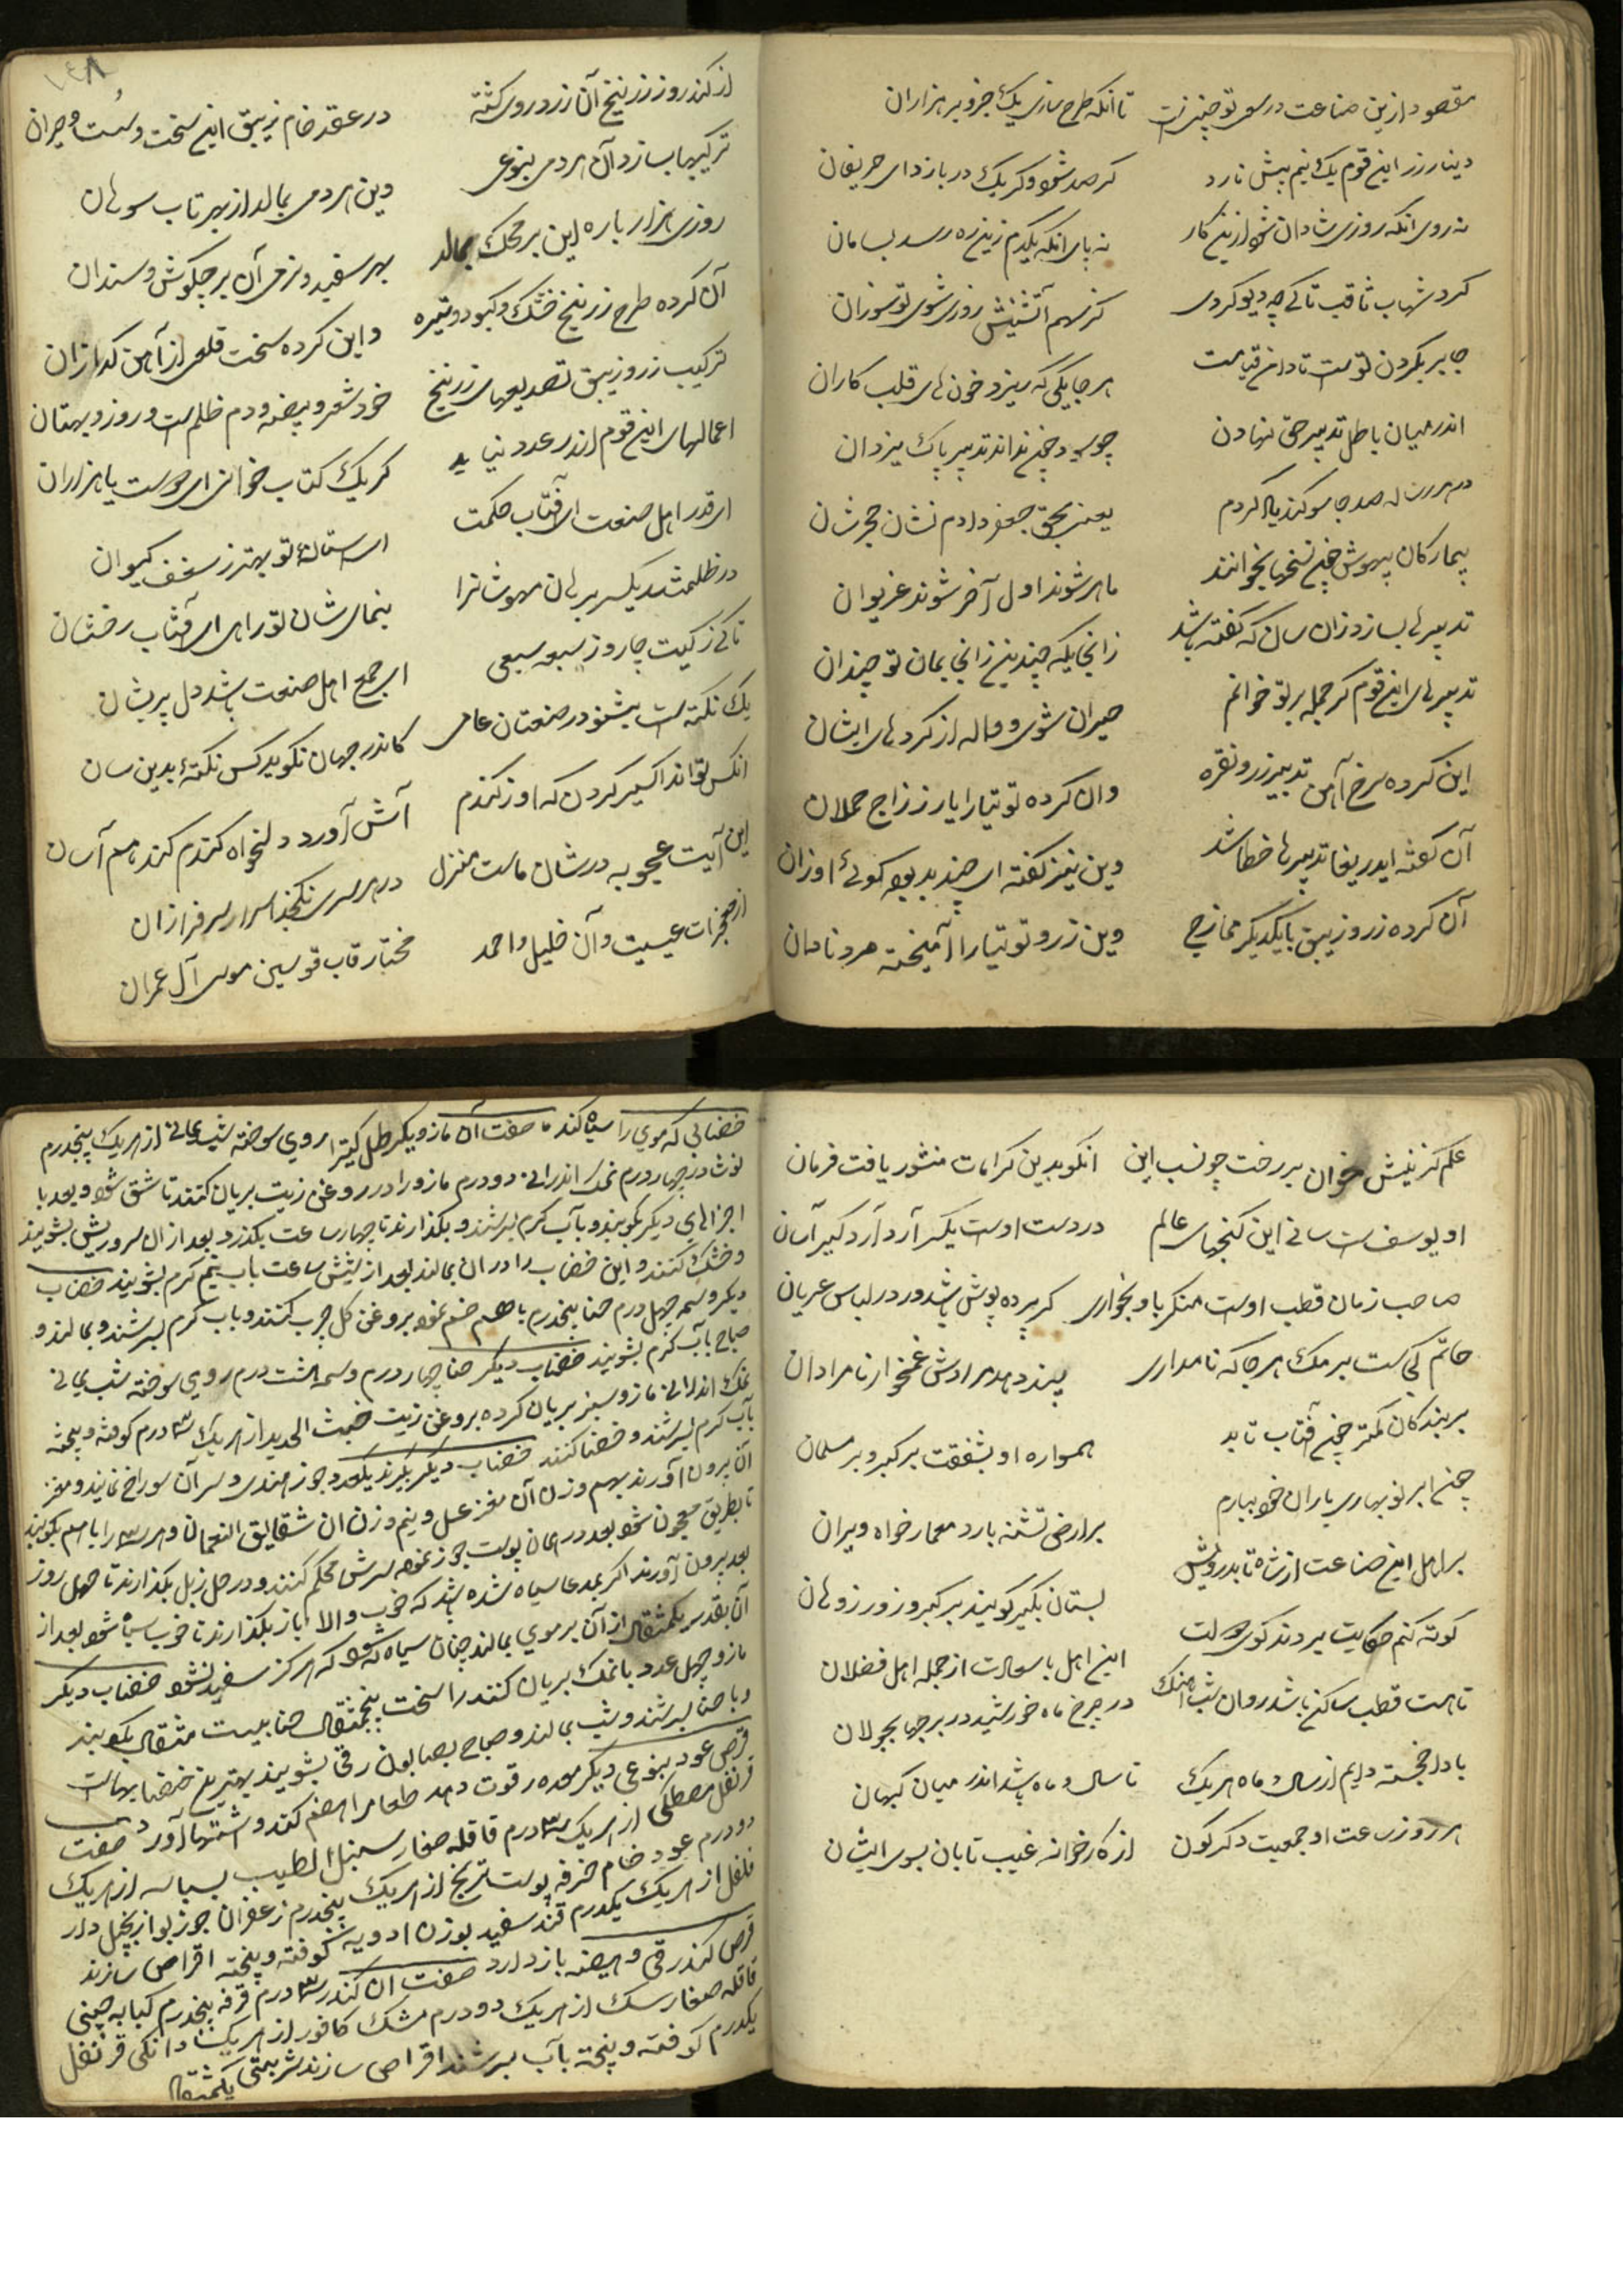 مقصود ازین صناعت در سعی تو چنین است تا آنکه طرح سازی یک جزو بر هزاران
دینار زر این قوم یک نیم پیش نارد گر صد شود و گر یک در بازد ای حریفان
نه روی انکه روزی شادان شود ازین کار نه پای انکه یکدم زین ره رسد بسامان
گرد شهاب ثاقب تا کی چو دیو گردی کز سهم آتشینش روزی شوی تو سوزان
جابر بگردن تو است تا دامن قیامت هر جایگی که ریزد خون های قلب کاران
اندر میان باطل تدبیر حق نهادن چون بوحنیفه نداند تدبیر پاک یزدان
صد جا سوکند یاد کردم یعنی بحق جعفر دادم نشان حجرشان
بیمارکان بیهوش چنین نسخها بخوانند ماهر شوند اول آخر شوند غریوان
تدبیرها بسازد زان سان که گفته باشد زانجا یکه چندین زانجا بمان تو چندان
تدبیرهای این قوم گر جمله بر تو خوانم حیران شوی و واله از کردهای ایشان
این کرده سرخ آهن تدبیر زر و نقره وان کرده توتیا را یار زر زاج حملان
آن گفته ای دریغا تدبیرها خطا شد وین نیز گفته ای چند بد بوته کوئی اوزان
آن کرده زر و زیبق با یکدیگر ممازج وین زر و توتیا را آمیخته مرد نادان
۱۴۸
از کندر و زرنیخ آن زرد روی کشته در عقد خام زیبق این سخت و سست و حیران
ترکیبها بسازد آن هر دمی بنوعی وین هر دمی بمالد از بهر تاب سوهان
روزی هزار باره این بر محک بمالد بهر سفید و نرمی آن بر چکوش و سندان
آن کرده طرح زرنیخ خشک و کبود و تیره و این کرده سخت قلعی از آهن گدازان
ترکیب زر و زیبق تصدیعهای زرنیخ خود شعر و بیضه و دم ظلم است و زور و بهتان
اعمالهای این قوم اندر عدد نیاید گر یک کتاب خوانی ای دوست یا هزاران
ای قدر اهل صنعت ای آفتاب حکمت ای آستانهٔ تو بهتر ز سقف کیوان
در ظلمتند یکسر برهان بیهوشانرا بنمای شان تو راهی ای آفتاب رخشان
تا کی ز کیت چار و ز سبعه سبعی ای جمع اهل صنعت باشد دل پریشان
یک نکته است بشنو در صنعتان عامی کاندر جهان نگوید کس نکتهٔ بدین سان
آنکس تواند اکسیر کردن که او ز گندم آش آورد دلخواه گندم کند هم آسان
این آیت عجوبه در شان ماست منزل در هر سری نگنجد اسرار سرفرازان
از معجزات عیسیست و آن خلیل و احمد مختار قاب قوسین موسی آل عمران
علم گزینش خوان بر رخت چو نسب این انکو بدین کرامات منثور یافت فرمان
او یوسف است سانی این گنجهای عالم در دست اوست یکسر آرد آرد گیر آسان
صاحب زمان قطب اوست منکر با و بخواری گر پرده پوش باشد ور در لباس عریان
خاتم کی است بر مک هر جا که نامداری بیند دهد مرادش غمخوار نامرادان
بر بندکان کمتر چون آفتاب تابد همواره او بشفقت بر کبر و بر مسلمان
چون ابر نوبهاری باران خود ببارم بر ارض تشنه بارد معمار خواه ویران
بر اهل این صناعت از شاه تا بدرویش بستان بگیر گویند بر کیر و زور زوهان
کوته کنم حکایت بروند کوی دولت این اهل با سعادت از جمله اهل فضلان
تا هست قطب ساکن باشد روان شب آهنگ در چرخ ماه خورشید در برجها بجولان
بادا خجسته دایم از سال و ماه هر یک تا سال و ماه باشد اندر میان کیهان
هر روز ساعت او جمعیت دگرگون از کارخانه غیب تابان بسوی ایشان
خضابی که موی را سیاه کند صفت آن مازو یکرطل کتیرا روی سوخته شب یمانی از هر یک پنجدرم
نوشادر چهار درم نمک اندرانی دو درم مازو را در روغن زیت بریان کنند تا شق شود و بعد با
اجزاهای دیگر بکوبند و بآب کرم بسرشند و بگذارند تا چهار ساعت بگذرد بعد از ان سر و ریش بشویند
و خشک کنند و این خضاب را در ان بمالند بعد از شش ساعت بآب نیم گرم بشویند خضاب
دیگر وسمه چهل درم حنا پنجدرم با هم ضم نموده بروغن گل چرب کنند و بآب گرم بسرشند و بمالند و
صباح بآب گرم بشویند خضاب دیگر حنا چهار درم وسمه هشت درم روی سوخته شب یمانی
نمک اندرانی مازو سبز بریان کرده بروغن زیت خبث الحدید از هر یک ۳ درم کوفته و بیخته
بآب گرم بسرشند و خضاب کنند خضاب دیگر بگیرند یکعدد جوز هندی و سر آن سوراخ نمایند و مغز
آن برون آورند بهم وزن آن مغز عسل و نیم وزن ان شقایق النعمان و هر سه را با هم بکوبند
تا بطریق معجون شود بعد در همان پوست جوز نموده سرش محکم کنند و در حل زبل بگذارند تا چهل روز
بعد برون آورند اگر بمدعا سیاه شده باشد که خوب و الا باز بگذارند تا خوب سیاه شود بعد از
آن بقدر یکمثقال از آن بر موی بمالند چنان سیاه شود که هرگز سفید نشود خضاب دیگر
مازو چهل عدد با نمک بریان کنند را سخت پنجمثقال حنا بیست مثقال بکوبند
و با حنا بسرشند و شب بمالند و صباح بصابون رقی بشویند بهترین خضابهاست
قرص عود بنوعی دیگر معده را قوت دهد طعام را هضم کند و اشتها آورد صفت
قرنفل مصطکی از هر یک ۳ درم قاقله صغار سنبل الطیب بسباسه از هر یک
دو درم عود خام خرفه پوست ترنج از هر یک پنجدرم زعفران جوزبوا زنجبیل دار
فلفل از هر یک یکدرم قند سفید بوزن ادویه کوفته و بیخته اقراص سازند
قرص کندر قی و هیضه باز دارد صفت ان کندر ۳ درم قرفه پنجدرم کبابه چینی
قاقله صغار سک از هر یک دو درم مشک کافور از هر یک دانکی قرنفل
یکدرم کوفته و بیخته بآب بسرشند اقراص سازند شربتی یکمثقال